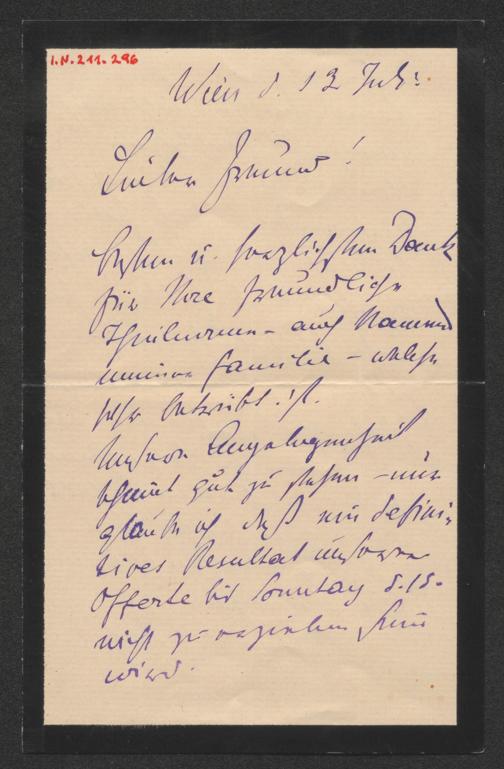 I.N. 211.296
Wien d. 13 Juli
Lieber Freund!
Besten u. herzlichsten Dank
für Ihre freundliche
Theilnahme – auch Namens
meiner Familie – welche
sehr betrübt ist.
Unsere Angelegenheit
scheint gut zu stehen – nur
glaube ich daß ein defini-
tives Resultat unserer
Offerte bis Sonntag d. 15.
nicht zu erzielen sein
wird.